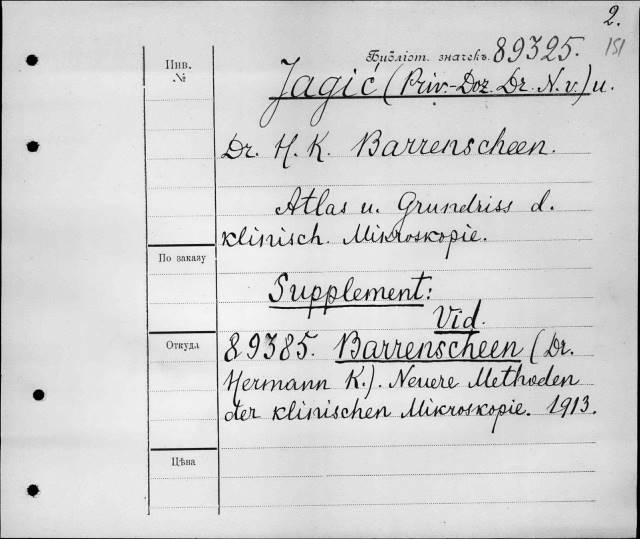 2.
151
Инв.
№
Библіот. значекъ. 89325.
Jagić (Priv.-Doz. Dr. N. v.) u.
Dr. H. K. Barrenscheen.
Atlas u. Grundriss d.
klinisch. Mikroskopie.
По заказу
Supplement:
Vid.
Откуда
89385. Barrenscheen (Dr.
Hermann K.). Neuere Methoden
der klinischen Mikroskopie. 1913.
Цѣна